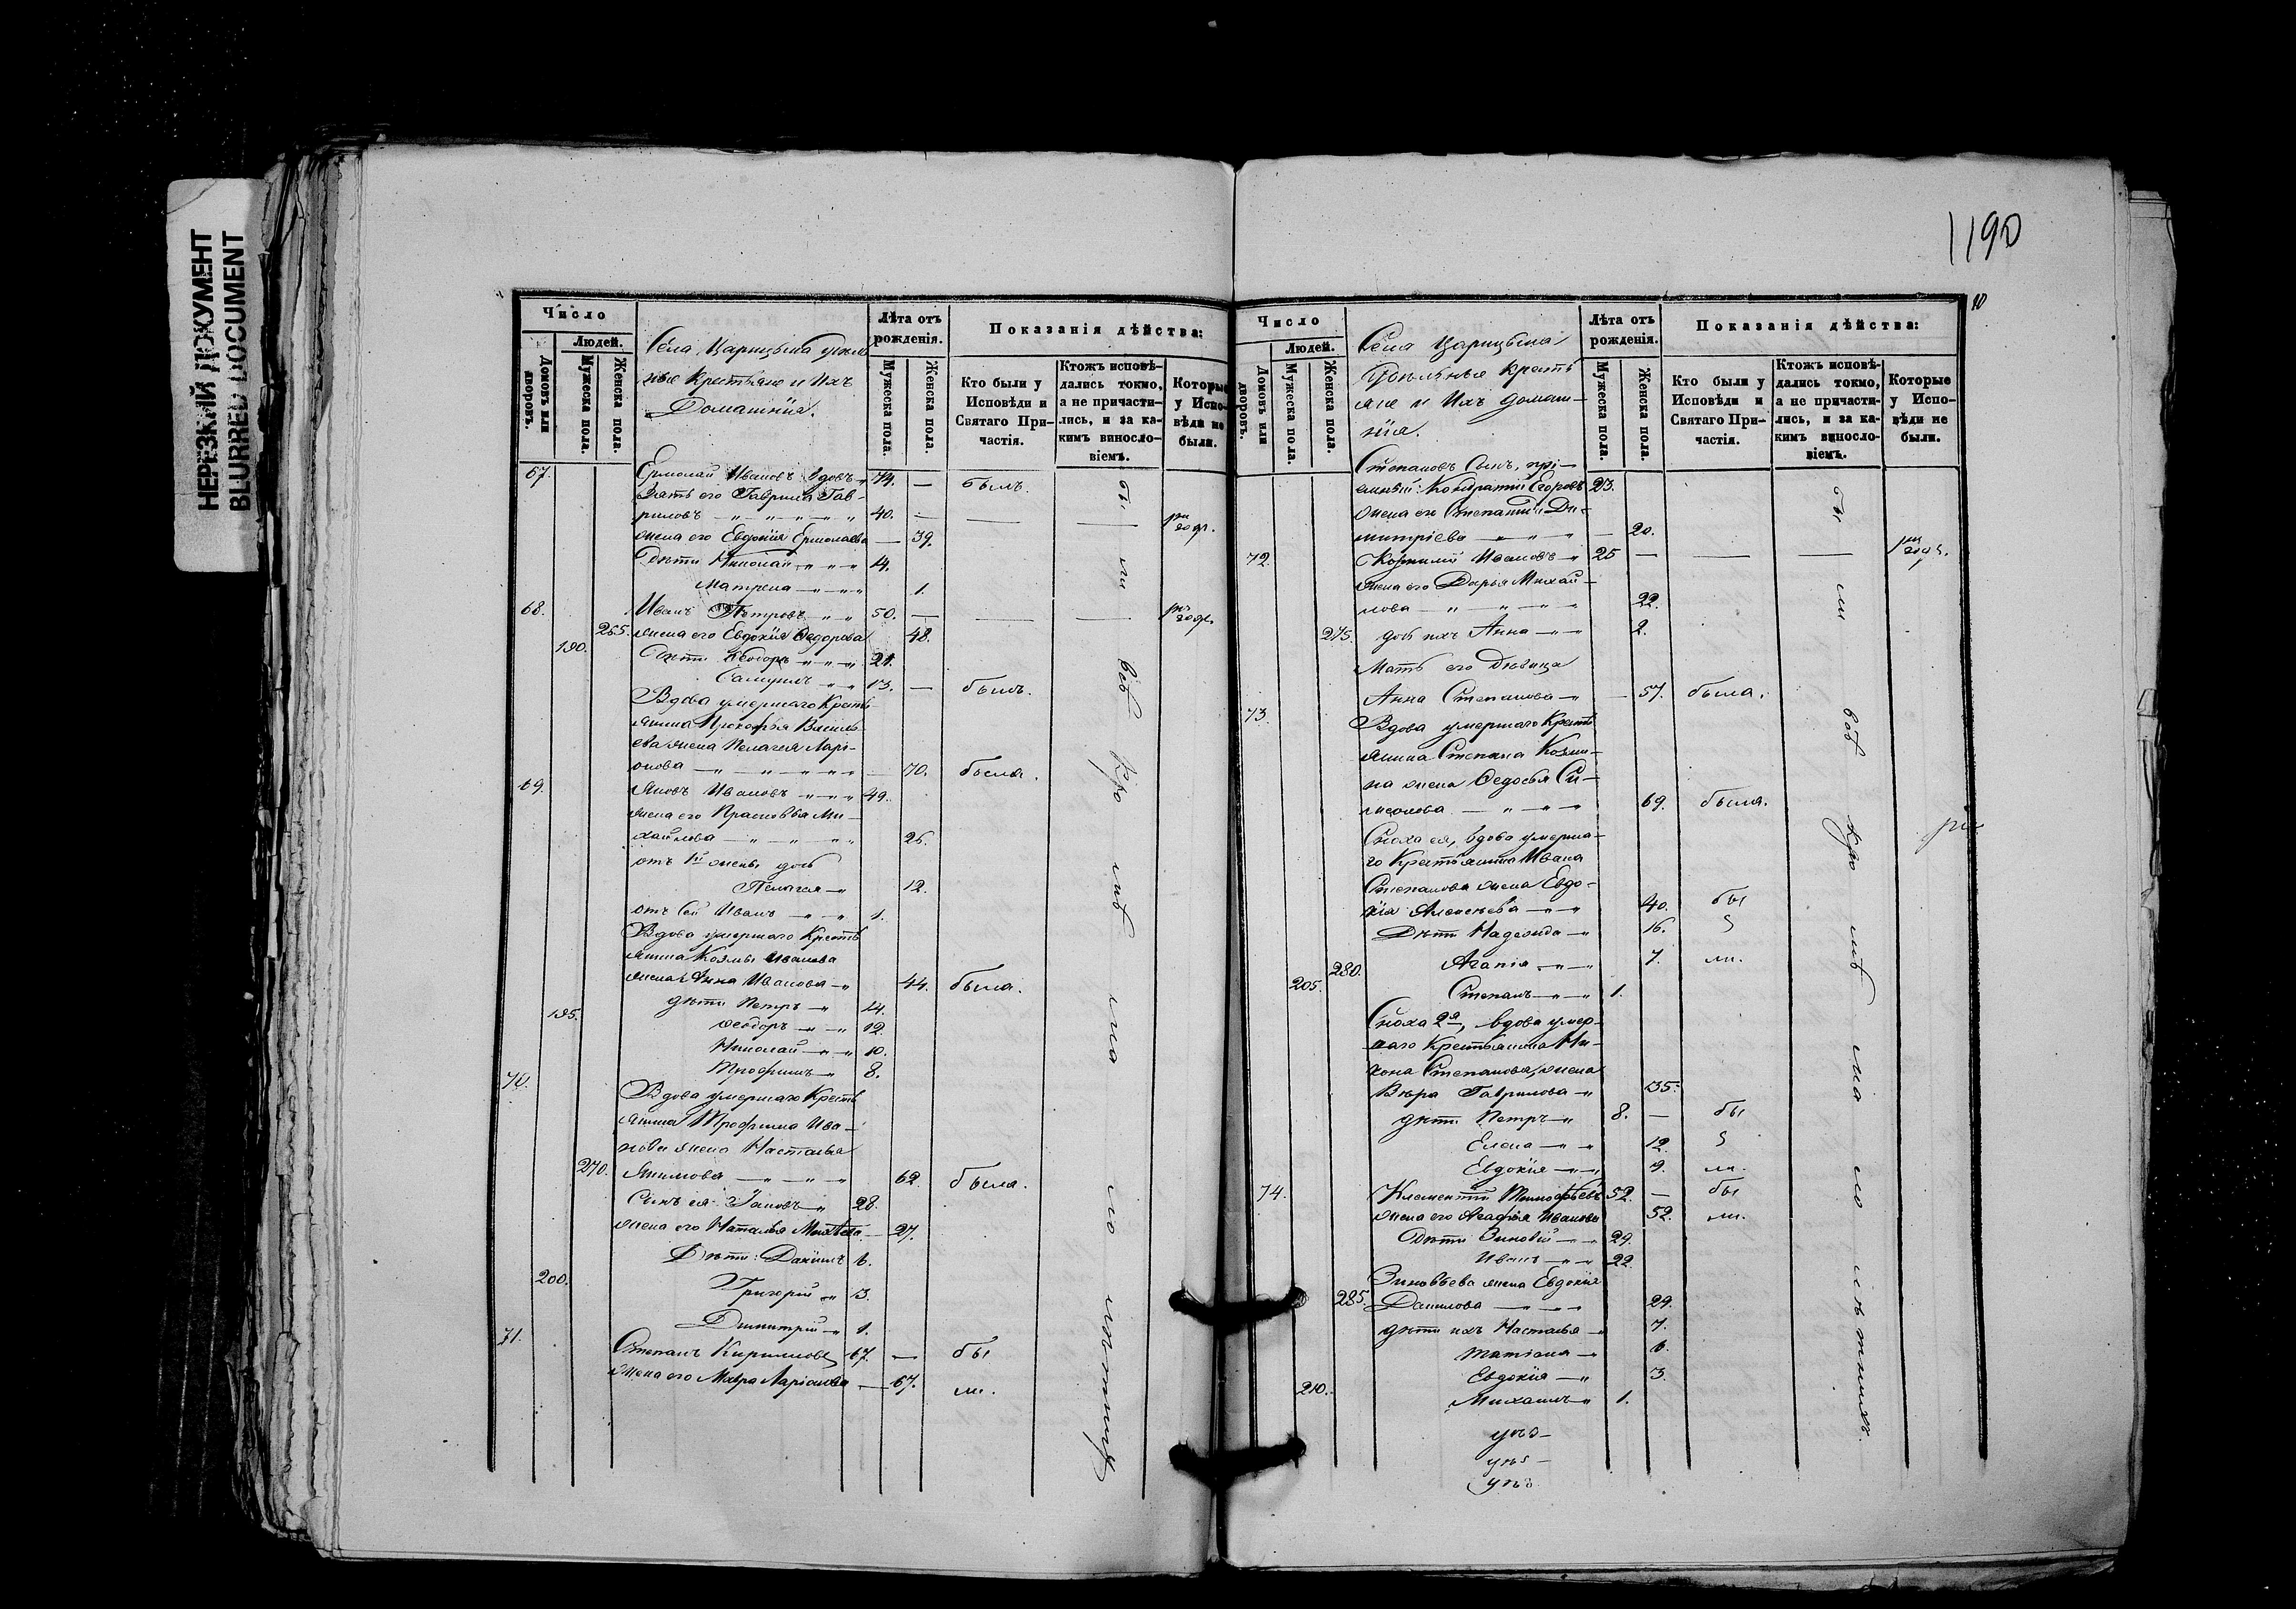 НЕРЕЗКИЙ ДОКУМЕНТ
BLURRED DOCUMENT
Число
Людей.
Домовъ или дворовъ.
Мужеска пола.
Женска пола.
Села Царицына
ные Крестьяне и Ихъ
Домашнiя.
Лѣта отъ рожденiя.
Мужеска пола.
Женска пола.
Показанiя дѣйства:
Кто были у Исповѣди и Святаго Причастiя.
Ктожъ исповѣдались токмо, а не причастились, и за какимъ винословiемъ.
Которые у Исповѣди не были.
67. Ермолай Ивановъ вдовъ 74. — былъ.
Зять его Гаврила Гав-
риловъ 40. —
жена его Евдокiя Ермолаева — 39.
Дѣти Николай 14.
Матрена 1.
68. Иванъ Петровъ 50. —
265. жена его Евдокiя Федорова 48.
190. Дѣти Ѳеодоръ 21.
Самуилъ 13. — былъ.
Вдова умершаго Кресть
янина Прокофья Василь-
ева жена Пелагея Ларi-
онова — 70. была.
69. Яковъ Ивановъ 49.
жена его Прасковья Ми-
хайлова 26.
отъ 1й жены дочь
Пелагея 12.
отъ сей Иванъ 1.
Вдова умершаго Кресть
янина Козмы Иванова
жена Анна Иванова 44. была.
дѣти Петръ 14.
195. Ѳеодоръ 12.
Николай 10.
Трофимъ 8.
70. Вдова умершаго Кресть
янина Трофима Ива-
нова жена Настасья
270. Якимова 62. была.
Сынъ ея Iаковъ 28.
жена его Наталья — 27.
Дѣти: Данiилъ 6.
200. Григорiй 3.
Димитрiй 1.
71. Степанъ Кириловъ 67. — бы
жена его Мавра Ларiонова — 67. ли.
бы ли всѣ кро мѣ ма ло
1190
10
Число
Людей.
Домовъ или дворовъ.
Мужеска пола.
Женска пола.
Села Царицына
Удѣльные Кресть
яне и Ихъ Домаш-
нiя.
Лѣта отъ рожденiя.
Мужеска пола.
Женска пола.
Показанiя дѣйства:
Кто были у Исповѣди и Святаго Причастiя.
Ктожъ исповѣдались токмо, а не причастились, и за какимъ винословiемъ.
Которые у Исповѣди не были.
Степановъ Сынъ, прi-
емный: Кондратiй Егоровъ 23.
жена его Степанида Ди-
митрiева — 20.
72. Корнилiй Ивановъ 25 —
жена его Дарья Михай-
лова 22.
275. дочь ихъ Анна 2.
Мать его Дѣвица
Анна Степанова — 57. была.
73. Вдова умершаго Кресть
янина Степана Козми-
на жена Ѳедосья Си-
меонова 69. была.
Сноха ея, вдова умерша-
го Крестьянина Ивана
Степанова жена Евдо-
кiя Алексѣева 40. бы
Дѣти Надежда 16.
280. Агапiя 7. ли.
205. Степанъ 1.
Сноха 2я, вдова умер-
шаго Крестьянина Ни-
кона Степанова, жена
Вѣра Гаврилова 35.
дѣти Петръ 8. — бы
Елена 12.
Евдокiя 9. ли.
74. Климентiй Тимофѣевъ 52. — бы
жена его Агафiя Иванова 52. ли.
Дѣти Зиновiй 29.
Иванъ 22.
Зиновьева жена Евдокiя
285. Данилова 29.
дѣти ихъ Настасья 7.
Татiана 6.
Евдокiя 3.
210. Михаилъ 1.
бы ли всѣ кро мѣ ма ло лѣтнихъ.